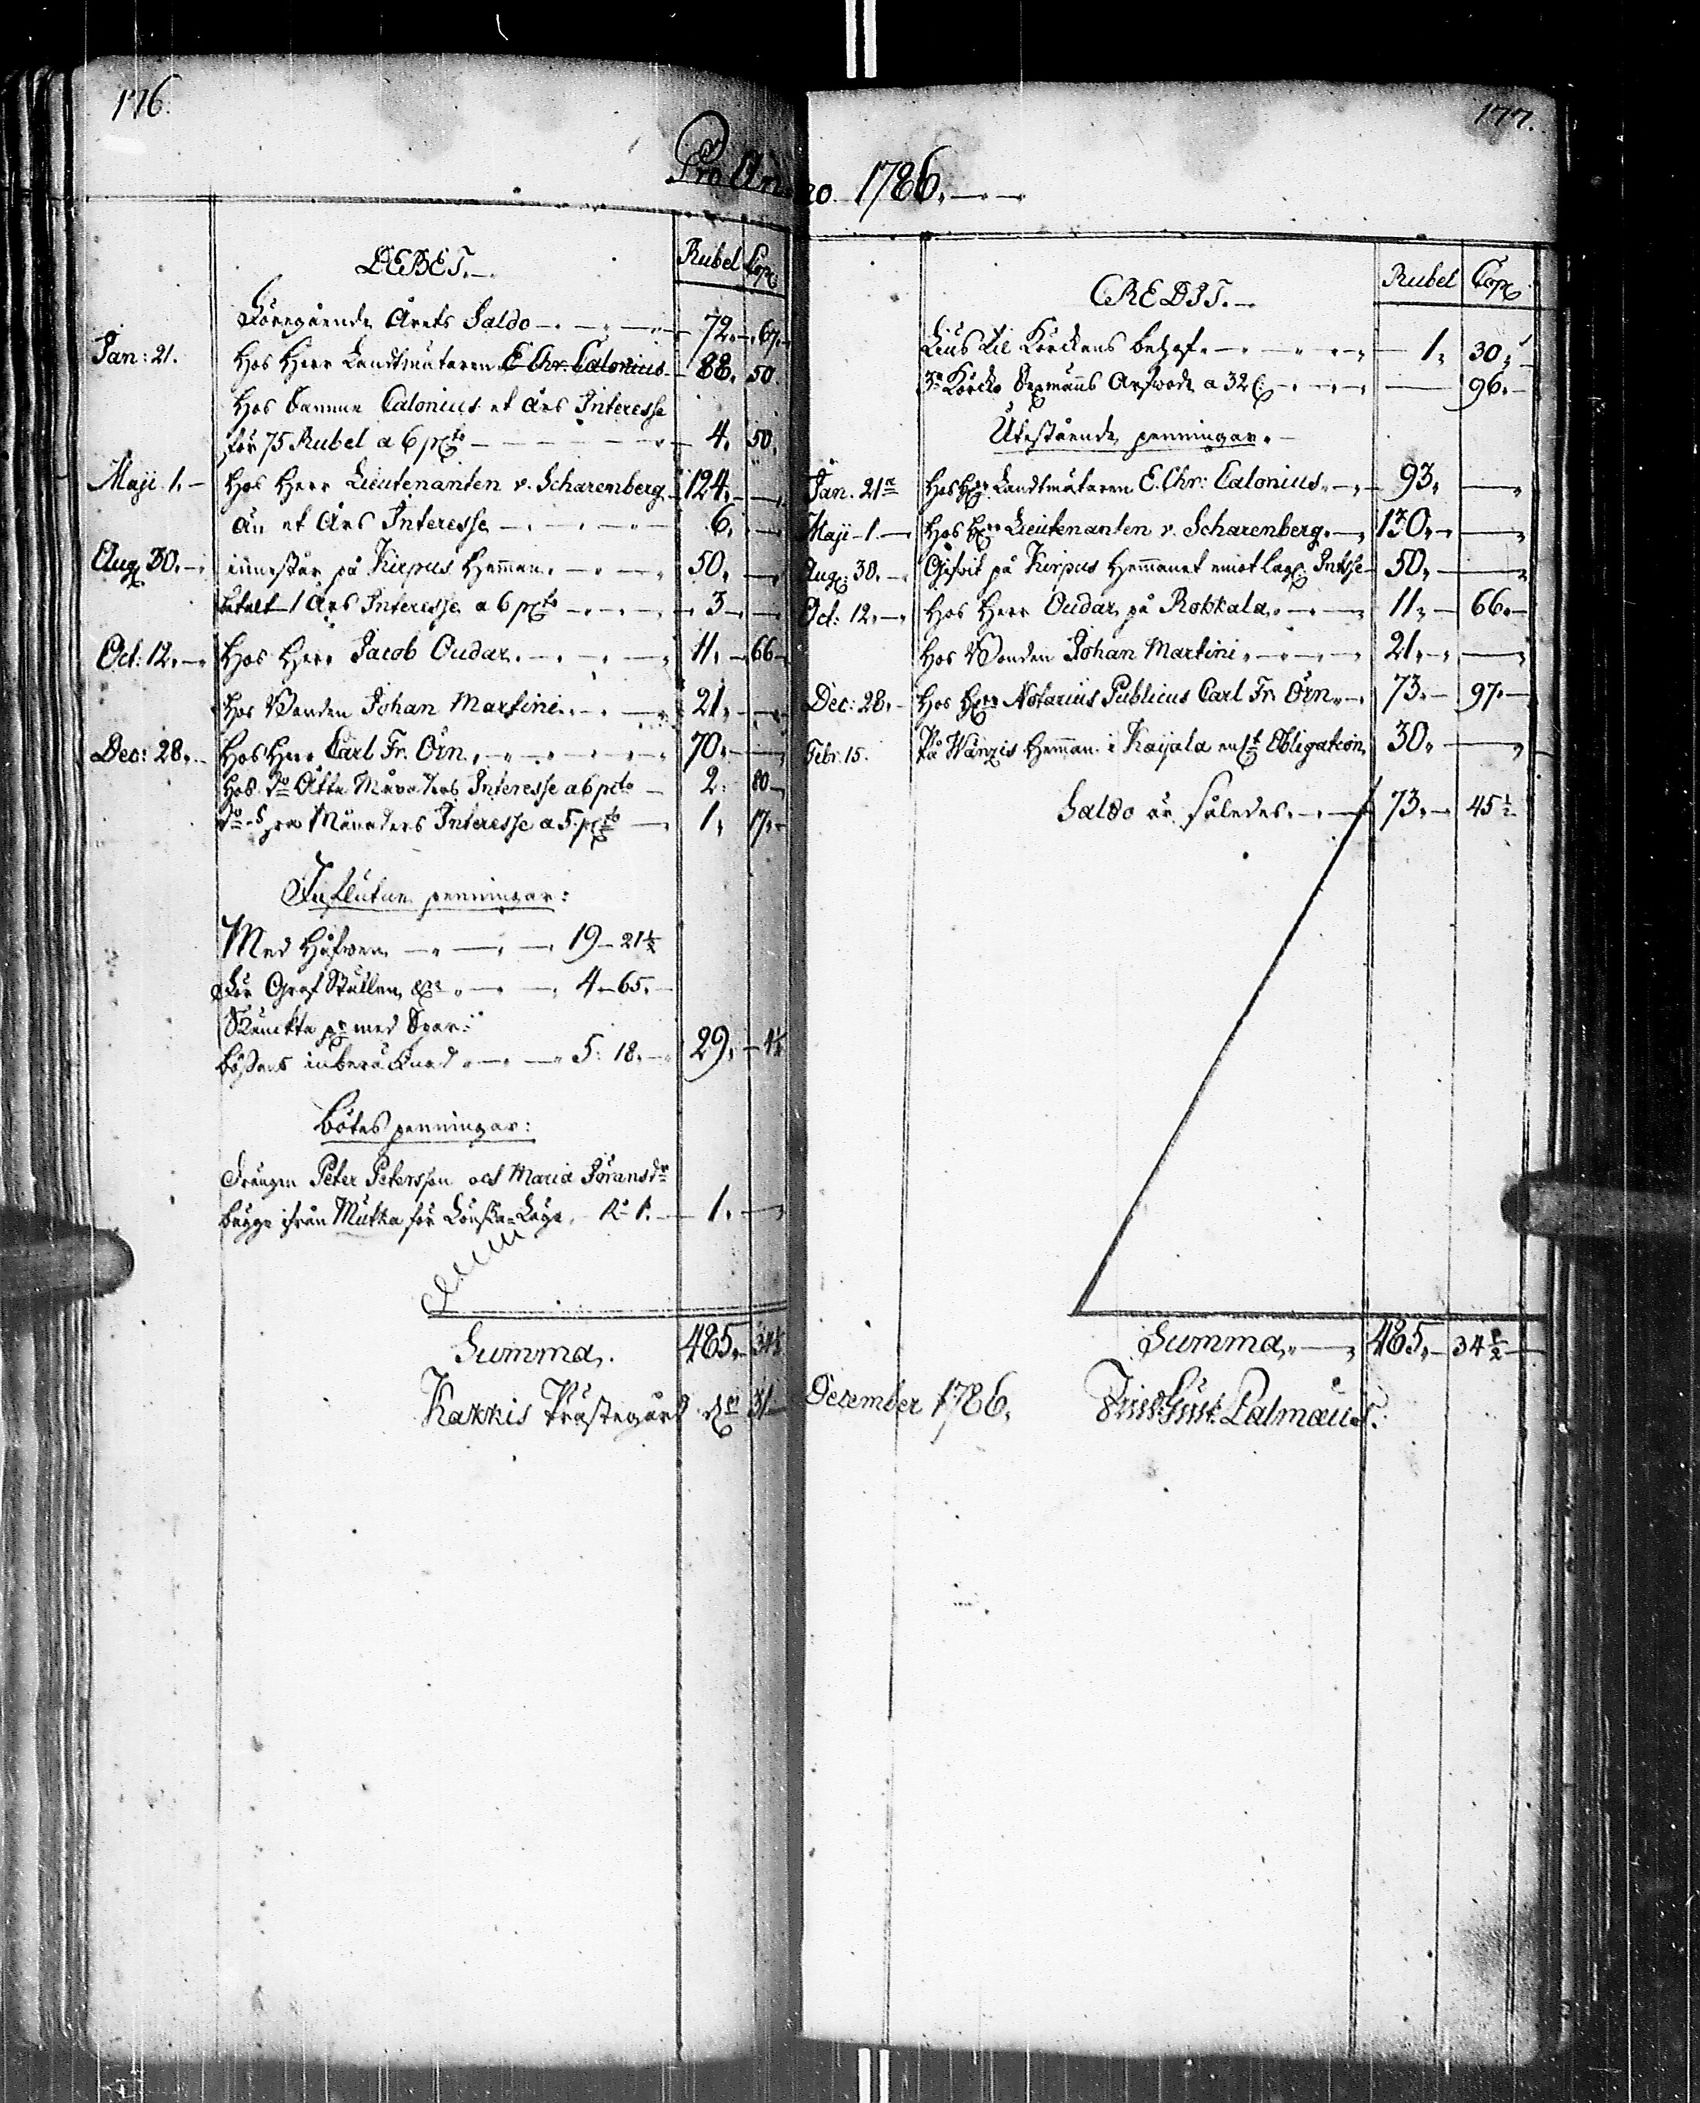 176.
Pro Anno 1786.
DEBET.
Rubel Cop
Föregående Årets Saldo 72. 67.
Jan: 21. Hos Herr Landtmätaren E Chr. Calonius 88. 50.
Hos Samme Calonius et Års Interesse
för 75 Rubel a 6 pcto 4. 50.
Maji 1. Hos Herr Lieutenanten v. Scharenberg 124.
än et Års Interesse 6.
Aug 30. innestår på Kirpus Hemman 50.
betalt 1 Års Interesse a 6 pcto 3
Oct: 12. Hos Herr Jacob Oudar 11. 66
Hos Bonden Johan Martini 21.
Dec: 28. Hos Herr Carl Fr. Örn 70.
Hos do Åtta Månaders Interesse a 6 pcto 2. 80
do Månaders Interesse a 5 pcto 1. 17.
Influtne penningar:
Med Håfwen 19 - 21½
För Graf Ställen &c 4 - 65.
Skänckte med Spar-
bössans inberäknad 5: 18. 29. 4½
Bötes penningar:
Drängen Peter Petersson och Maria Göransdr
bägge ifrån Mutka för Lönska-Läge R 1. 1.
Summa. 485. 34½
Kakkis Prästegård d 31
177.
CREDIT.
Rubel Cop
Lius til Kyrckans behof 1. 30.
3ne Kyrcko Sexmäns Arfwode a 32 C. 96.
Utestående penningar.
Jan. 21 Hos Hr Landtmätaren E. Chr: Calonius 93.
Maji 1 Hos Hr Lieutenanten v. Scharenberg 130.
Aug: 30. på Kirpus Hemmanet emot lag Intsse 50.
Oct: 12. Hos Herr Oudar på Rokkala 11. 66.
Hos Bonden Johan Martini 21.
Dec: 28. Hos Hr Notarius Publicus Carl Fr. Örn 73. 97.
Febr. 15. På Hemman i Kaijala Obligation 30.
Saldo är således 73. 45½
Summa 485. 34½
December 1786. Palmæus.